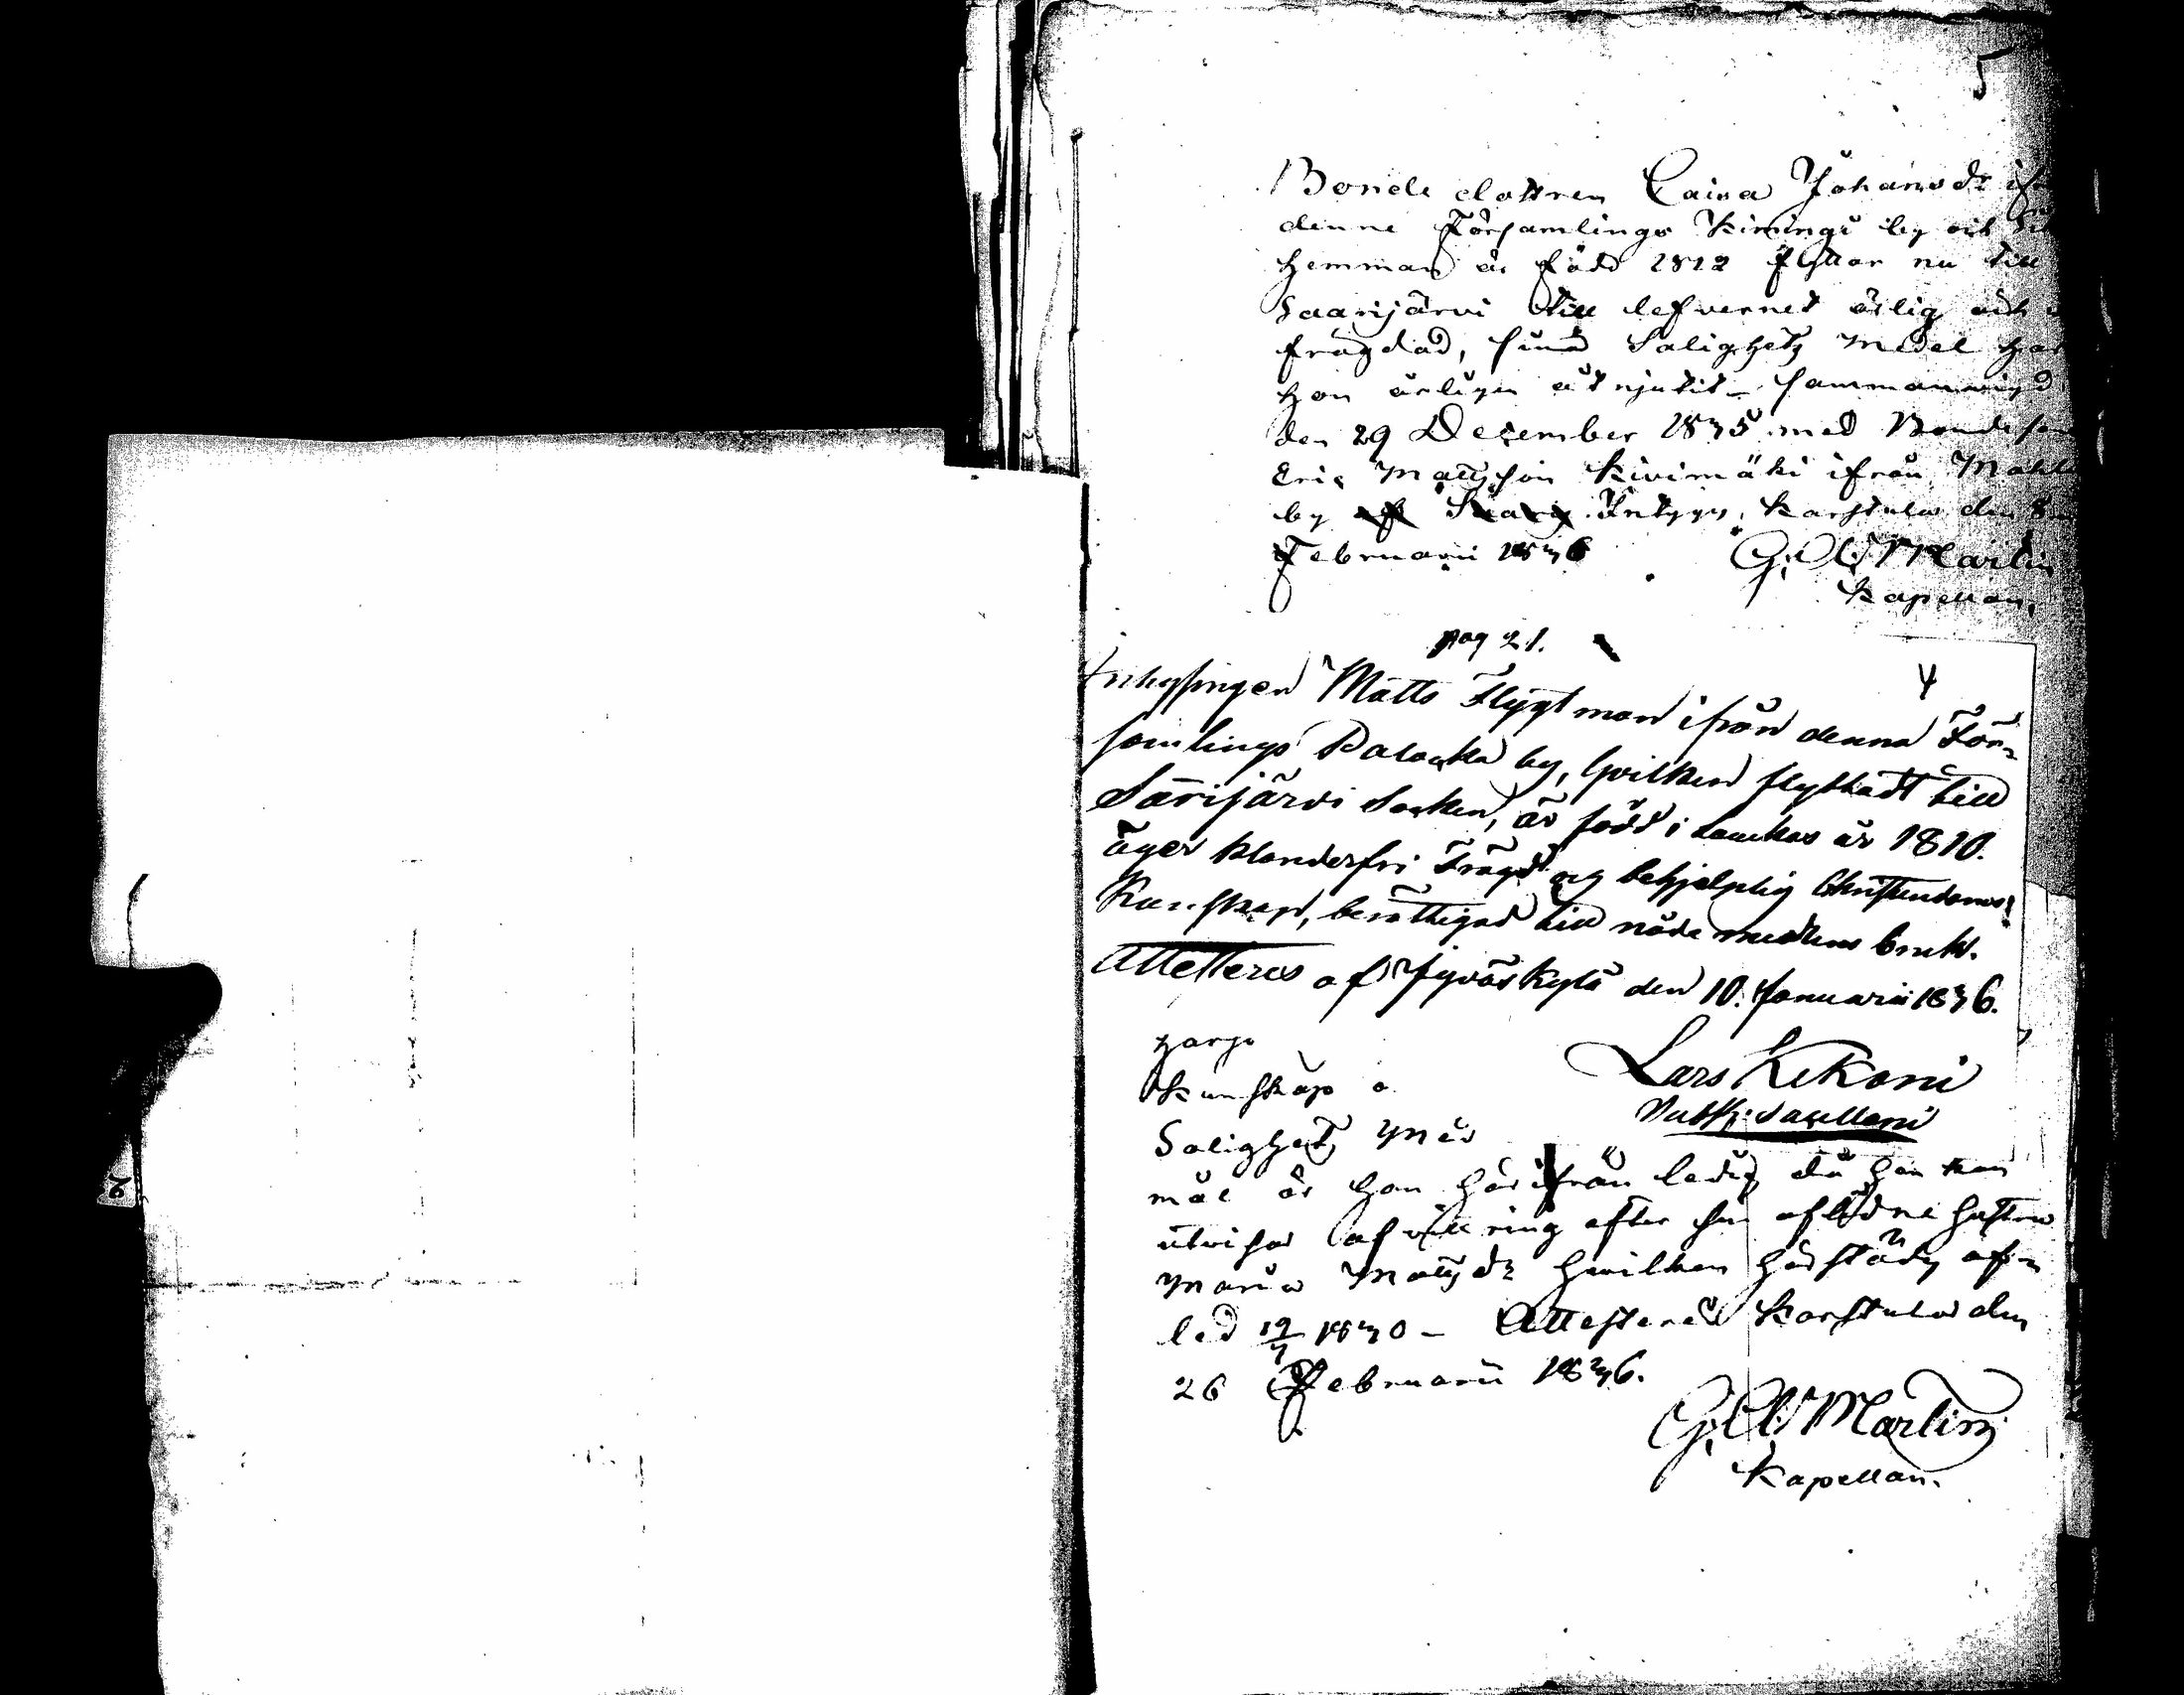 5
Bonde dottren Caisa Johansdr ifrån
denne Församlings Kimingi by och
hemman är född 1812 flyttar nu till
Saarijärvi till lefvernet ärlig och
frägdad, sund Salighetz Medel har
hon årligen åtnjutit – sammanvigd
den 29 Dezember 1835 med Bondeson
Eric Mattsson Kivimäki ifrån
by Intygar, Karstula den
Februarii 1836 G. A. Martin
Kapellan.
pag 21.
4
Inhysingen Matts Flygtman ifrån denna För-
samlings Palocka by, hvilken flyttadt till
Sarijärvi Socken, är född i Laukas år 1810.
äger klanderfri Frägd og behjelplig Christendoms
Kunskap, berättigad till nådemedlens bruk.
Attesteras af Jyväskylä den 10. Januarii 1836.
Lars Kekoni
Sacellani
Kunskap
Salighetz Med
mål är han härifrån ledig då han kan
utvisa afvittring efter sin aflidne hustru
Maria Matsdr hvilken härstädes af-
led 19/7 1830 – Attesterar Karstula den
26 Februarii 1836.
G. A. Martin
Kapellan.
2